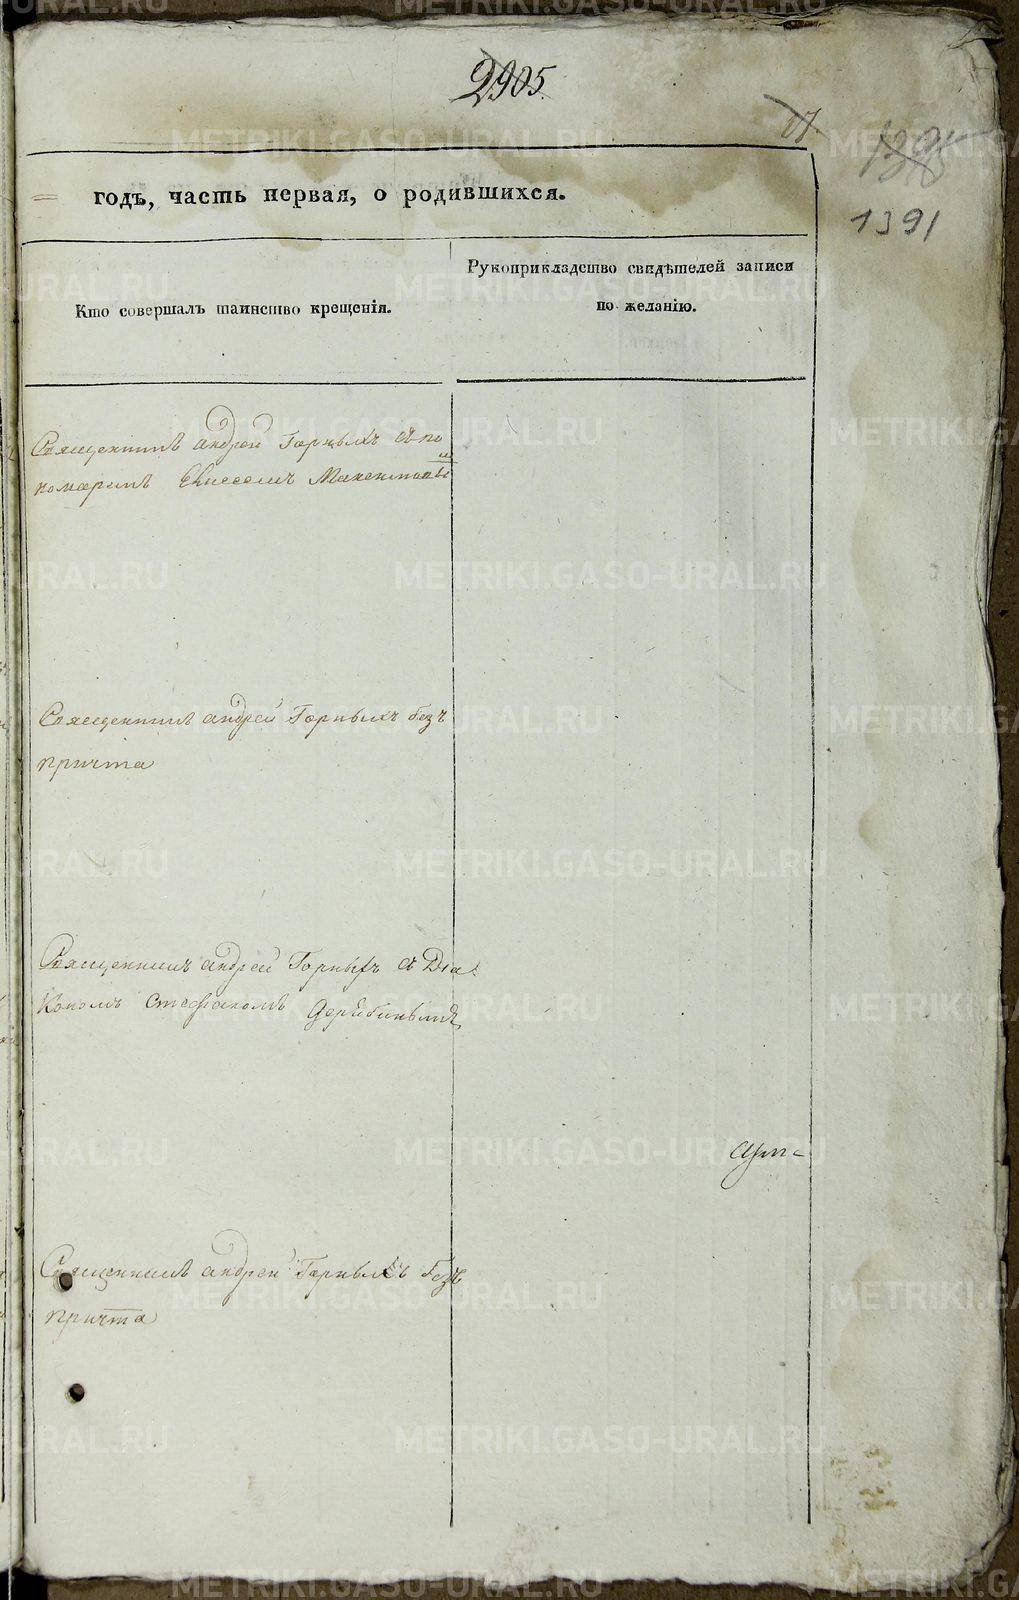 2905.
17.
1391
годъ, часть первая, о родившихся.
Кто совершалъ таинство крещенія.
Рукоприкладство свидѣтелей записи
по желанію.
Священникъ андрей Горныхъ съ по
номаремъ Елисеемъ
Священникъ андрей Горныхъ безъ
причта
Священникъ андрей Горныхъ съ Діа
кономъ Стефаномъ Дерябинымъ
Священникъ андрей Горныхъ безъ
причта
METRIKI.GASO-URAL.RU